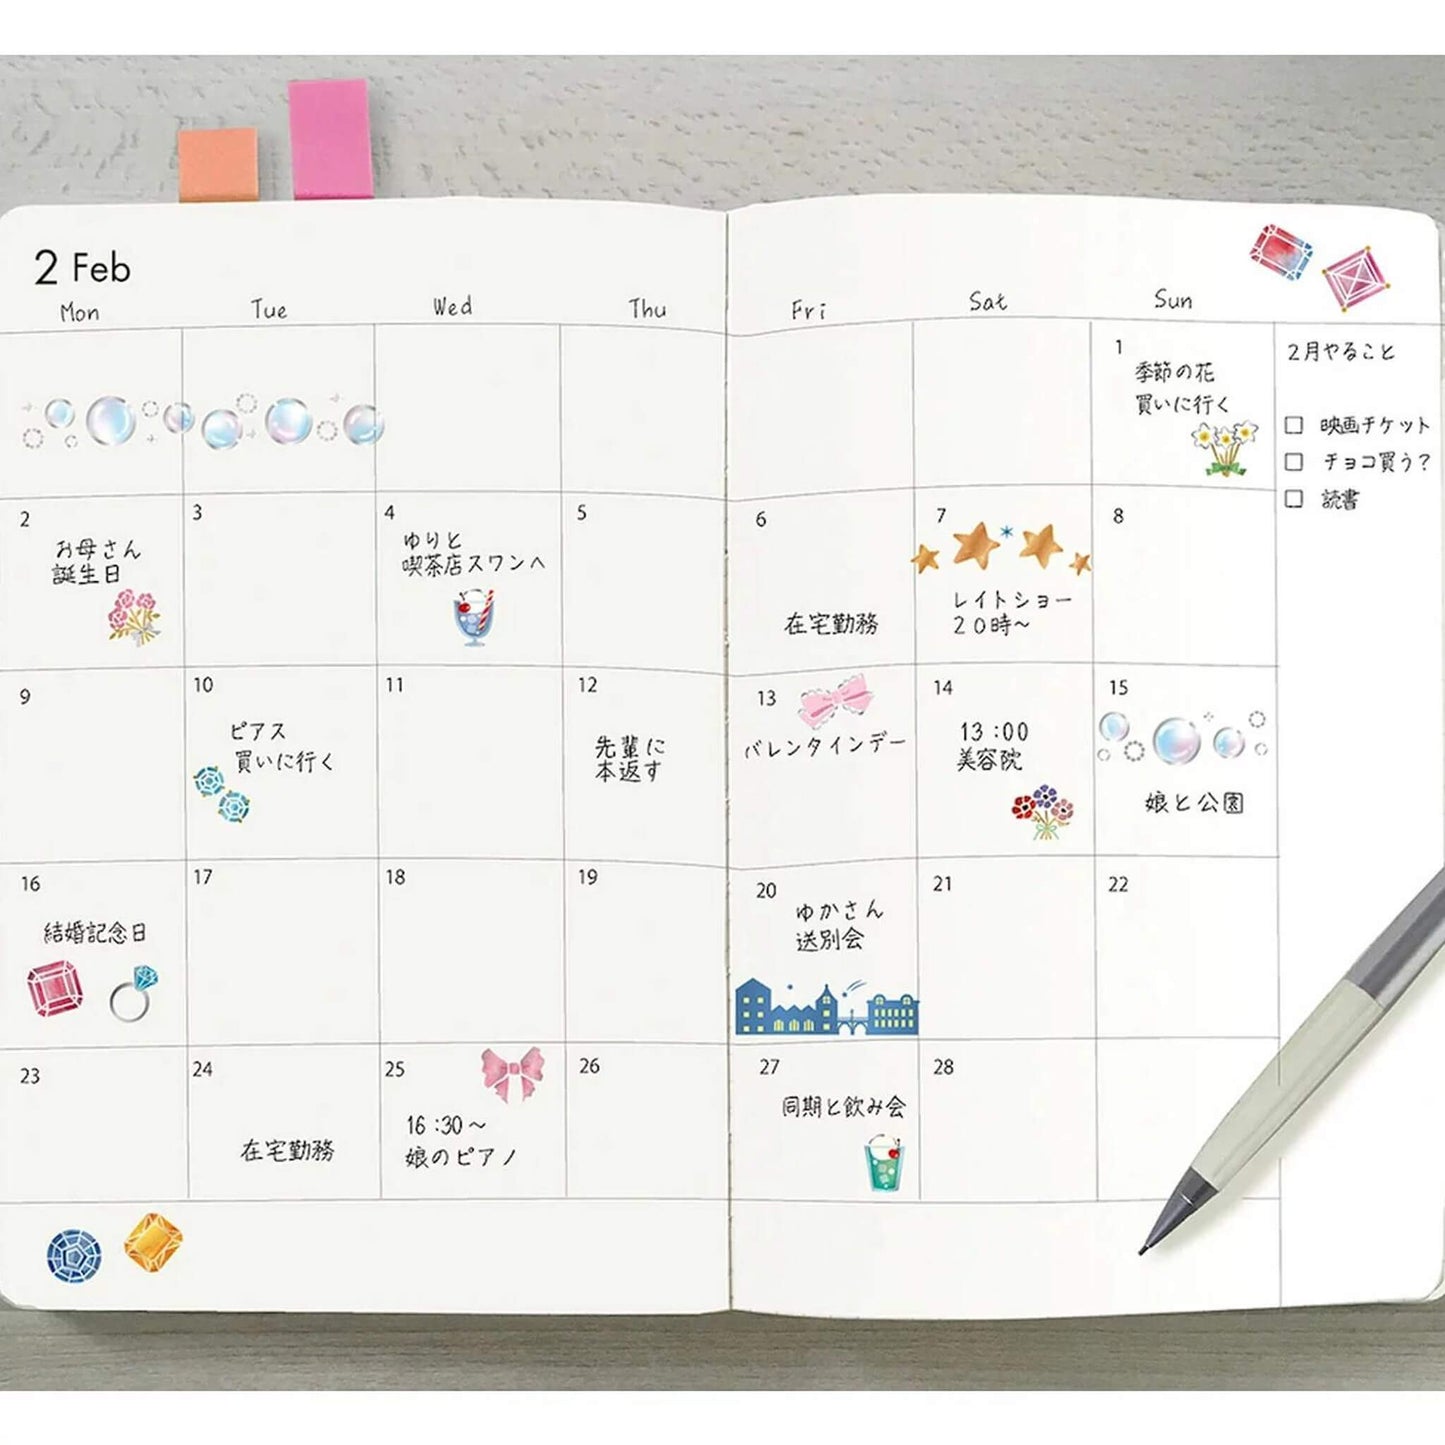 2 Feb
Mon Tue Wed Thu Fri Sat Sun
1
季節の花
買いに行く
2月やること
□ 映画チケット
□ チョコ買う?
□ 読書
2
お母さん
誕生日
3
4
ゆりと
喫茶店スワンへ
5
6
在宅勤務
7
レイトショー
20時~
8
9
10
ピアス
買いに行く
11
12
先輩に
本返す
13
バレンタインデー
14
13:00
美容院
15
娘と公園
16
結婚記念日
17
18
19
20
ゆかさん
送別会
21
22
23
24
在宅勤務
25
16:30~
娘のピアノ
26
27
同期と飲み会
28